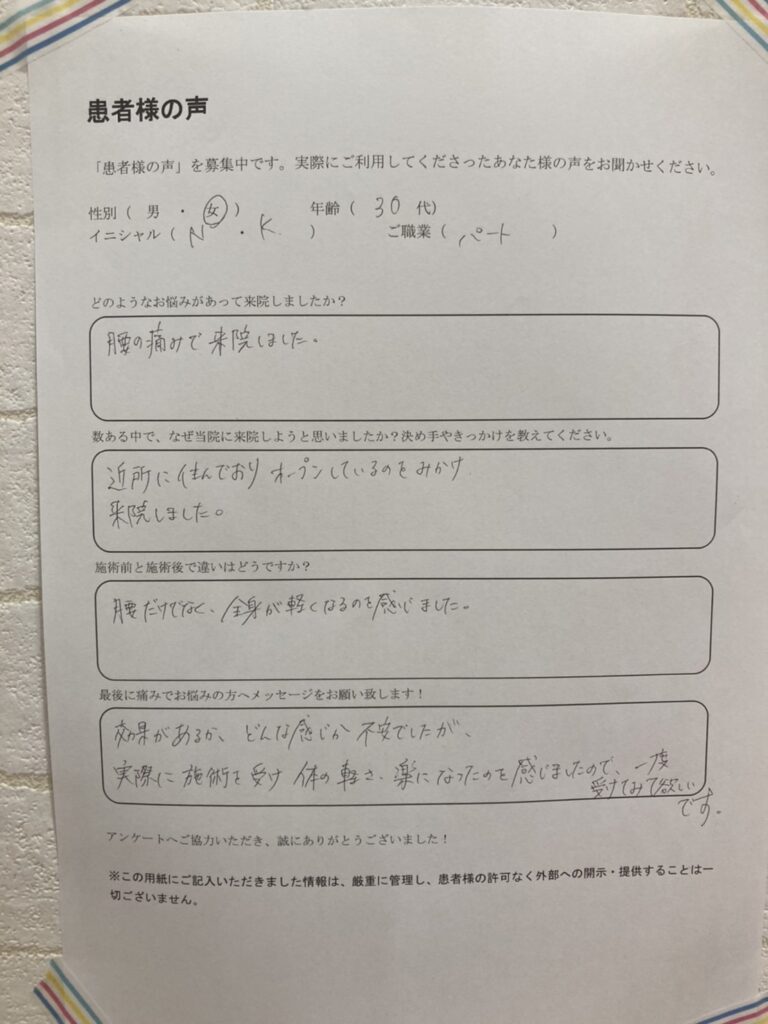 患者様の声
「患者様の声」を募集中です。実際にご利用してくださったあなた様の声をお聞かせください。
性別（ 男 ・ 女 ） 年齢（ 30 代）
イニシャル（ N ・ K. ） ご職業（ パート ）
どのようなお悩みがあって来院しましたか？
腰の痛みで来院しました。
数ある中で、なぜ当院に来院しようと思いましたか？決め手やきっかけを教えてください。
近所に住んでおり オープンしているのをみかけ
来院しました。
施術前と施術後で違いはどうですか？
腰だけでなく、全身が軽くなるのを感じました。
最後に痛みでお悩みの方へメッセージをお願い致します！
効果があるか、どんな感じか 不安でしたが、
実際に 施術を受け 体の軽さ、楽になったのを感じましたので、一度
受けてみて欲しい
です。
アンケートへご協力いただき、誠にありがとうございました！
※この用紙にご記入いただきました情報は、厳重に管理し、患者様の許可なく外部への開示・提供することは一
切ございません。